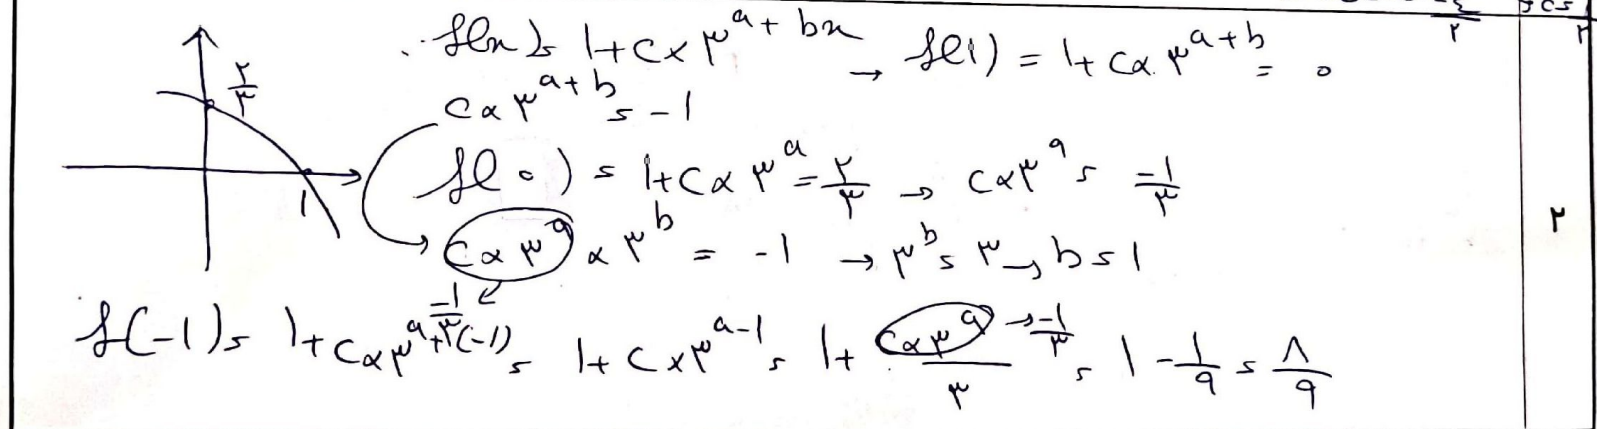 f(x) = 1+c×۳^(a+bx) → f(1) = 1+c×۳^(a+b) = ۰
c×۳^(a+b) = -1
۲/۳
f(۰) = 1+c×۳^a = ۲/۳ → c×۳^a = -1/۳
1
c×۳^a × ۳^b = -1 → ۳^b = ۳ → b=1
-1/۳
f(-1) = 1+c×۳^(a+1(-1)) = 1+c×۳^(a-1) = 1+ (c×۳^a)/۳ → -1/۳ = 1 - 1/۹ = ۸/۹
۲